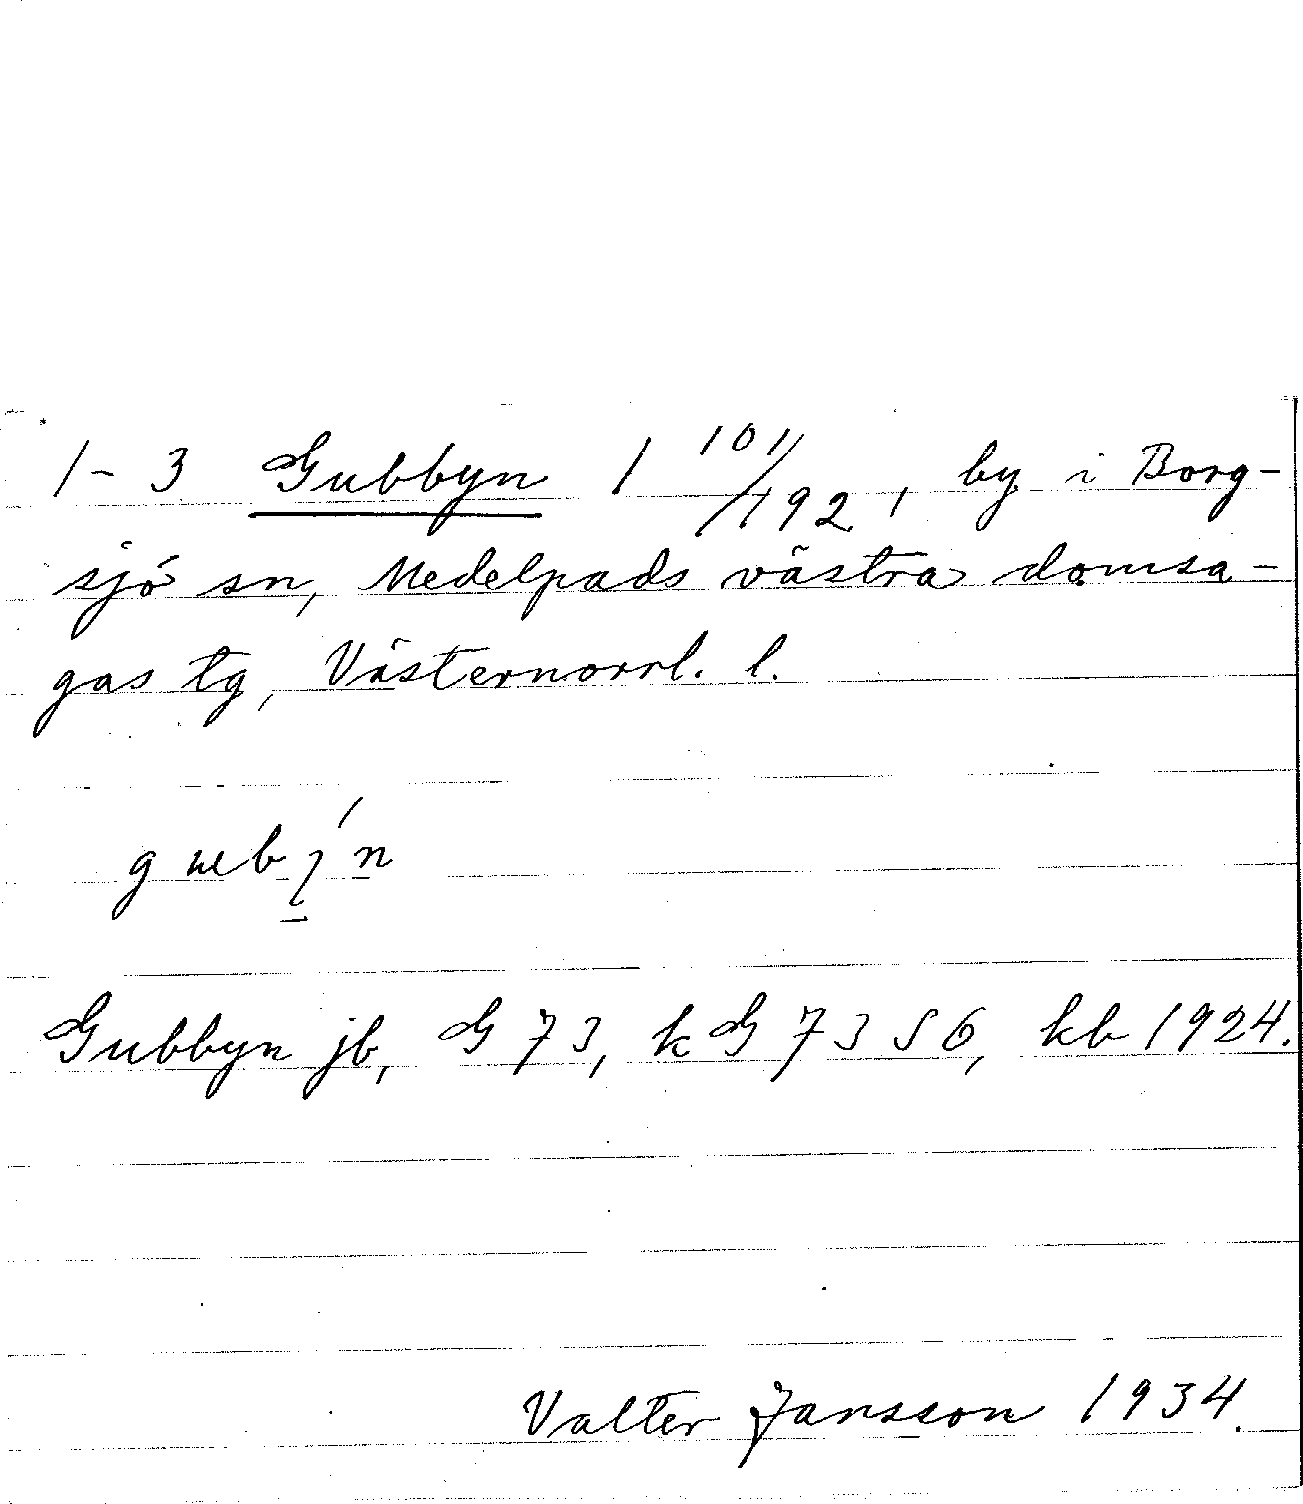 1-3 Gubbyn 1 101/192, by i Borg-
sjö sn, Medelpads västra domsa-
gas tg, Västernorrl. l.
Gubbyn jb, G 73, kG 73 S6, kb 1924.
Valter Jansson 1934.